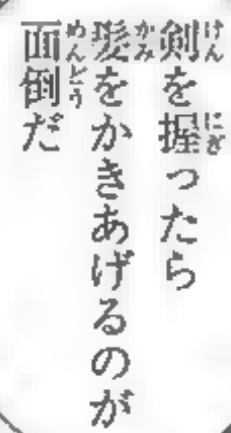 剣を握ったら
髪をかきあげるのが
面倒だ